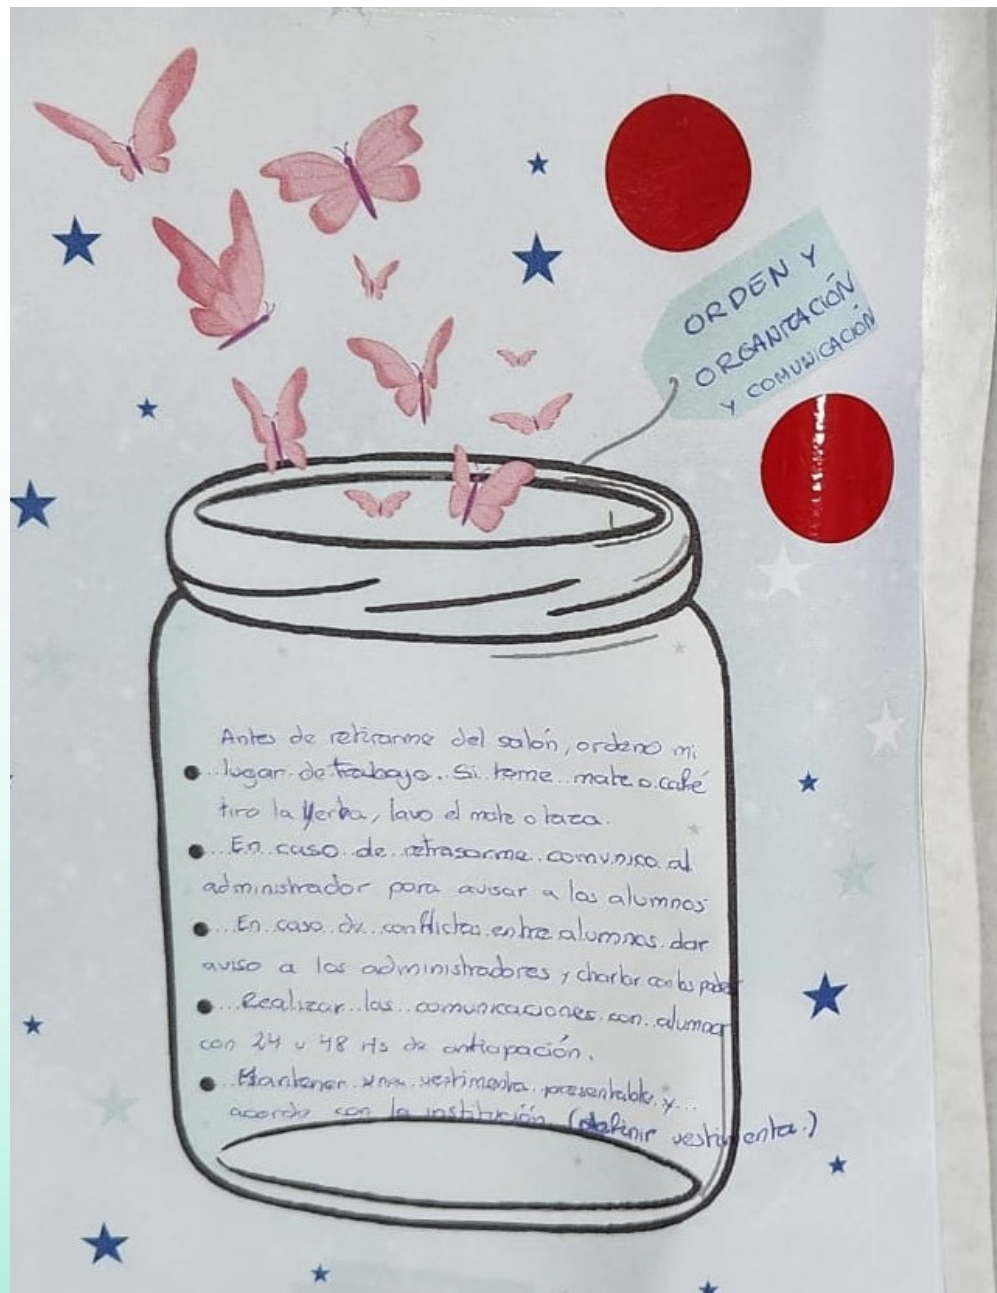 ORDEN Y
ORGANIZACIÓN
Y COMUNICACIÓN
Antes de retirarme del salón, ordeno mi
lugar de trabajo. Si tome mate o café
tiro la yerba, lavo el mate o taza.
En caso de retrasarme comunico al
administrador para avisar a los alumnos
En caso de conflictos entre alumnos dar
aviso a los administradores y charlar con los padres
Realizar las comunicaciones con alumnos
con 24 u 48 Hs de anticipación.
Mantener una vestimenta presentable y
acorde con la institución (definir vestimenta.)